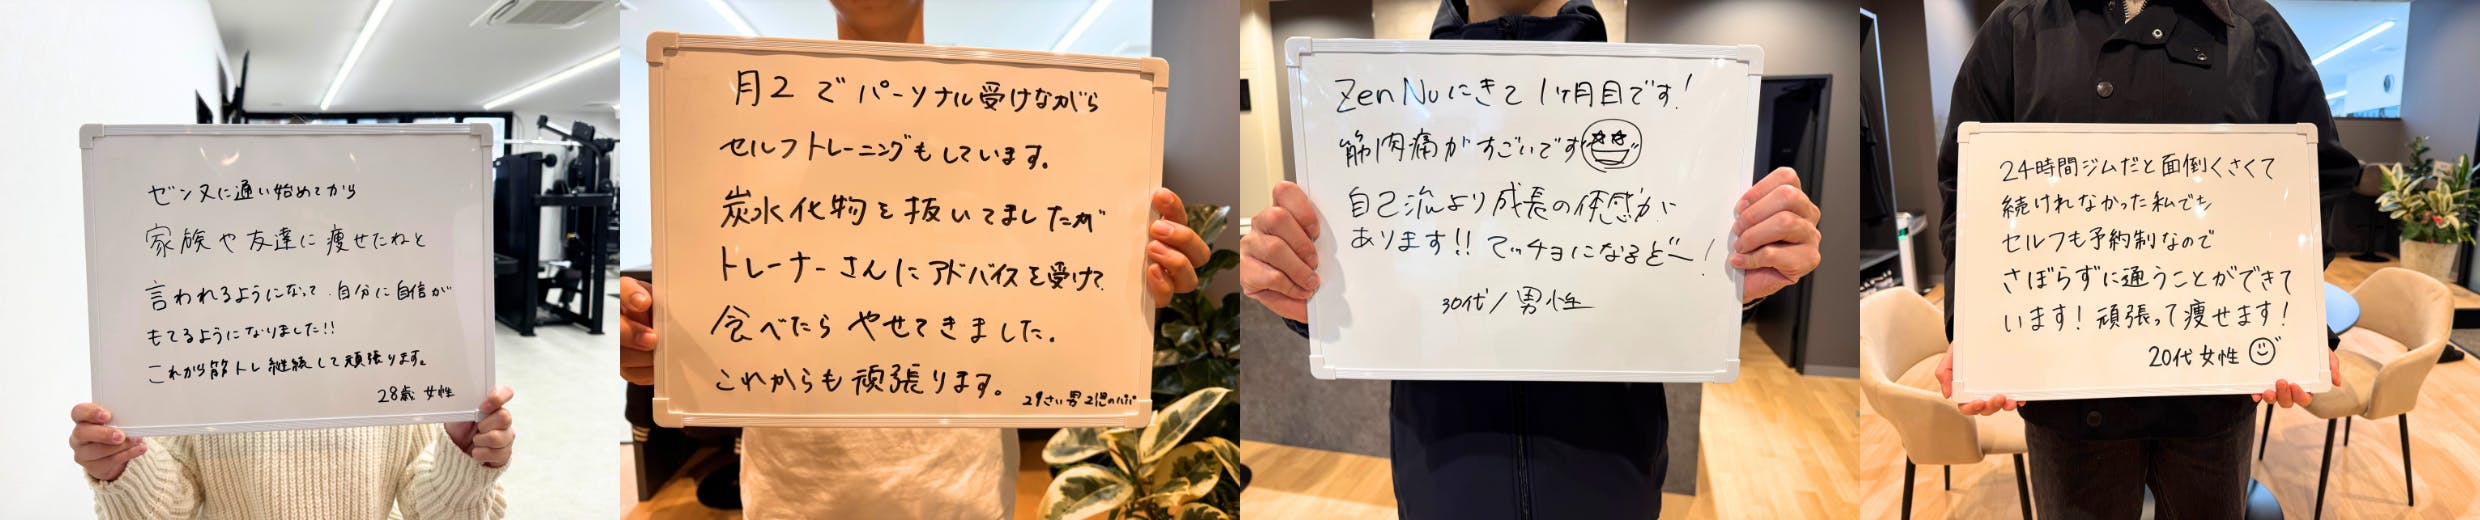 ゼンヌに通い始めてから
家族や友達に痩せたねと
言われるようになって、自分に自信が
もてるようになりました!!
これから筋トレ継続して頑張ります。
28歳 女性
月2でパーソナル受けながら
セルフトレーニングもしています。
炭水化物を抜いてましたが
トレーナーさんにアドバイスを受けて
食べたらやせてきました。
これからも頑張ります。
29さい男 2児のパパ
Zen Nuにきて1ヶ月目です!
筋肉痛がすごいです
自己流より成長の体感が
あります!! マッチョになるどー!
30代/男性
24時間ジムだと面倒くさくて
続けれなかった私でも
セルフも予約制なので
さぼらずに通うことができて
います!頑張って痩せます!
20代 女性